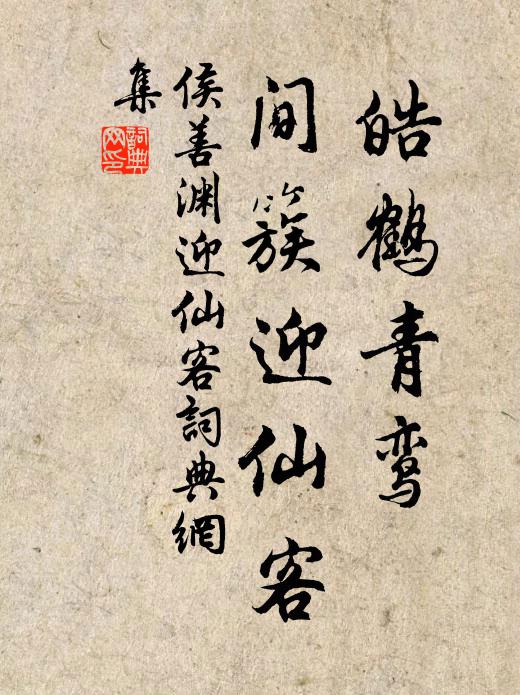 皓鹤青鸾
间簇迎仙客
侯善渊迎仙客詞典網
集
詞典网印